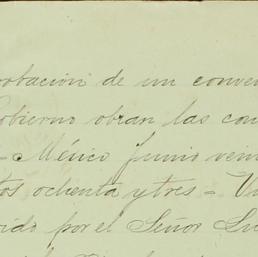 robacion de un conve
Gobierno obran las con
- México Junio vein
tos ochenta y tres = V
ido por el Señor Su